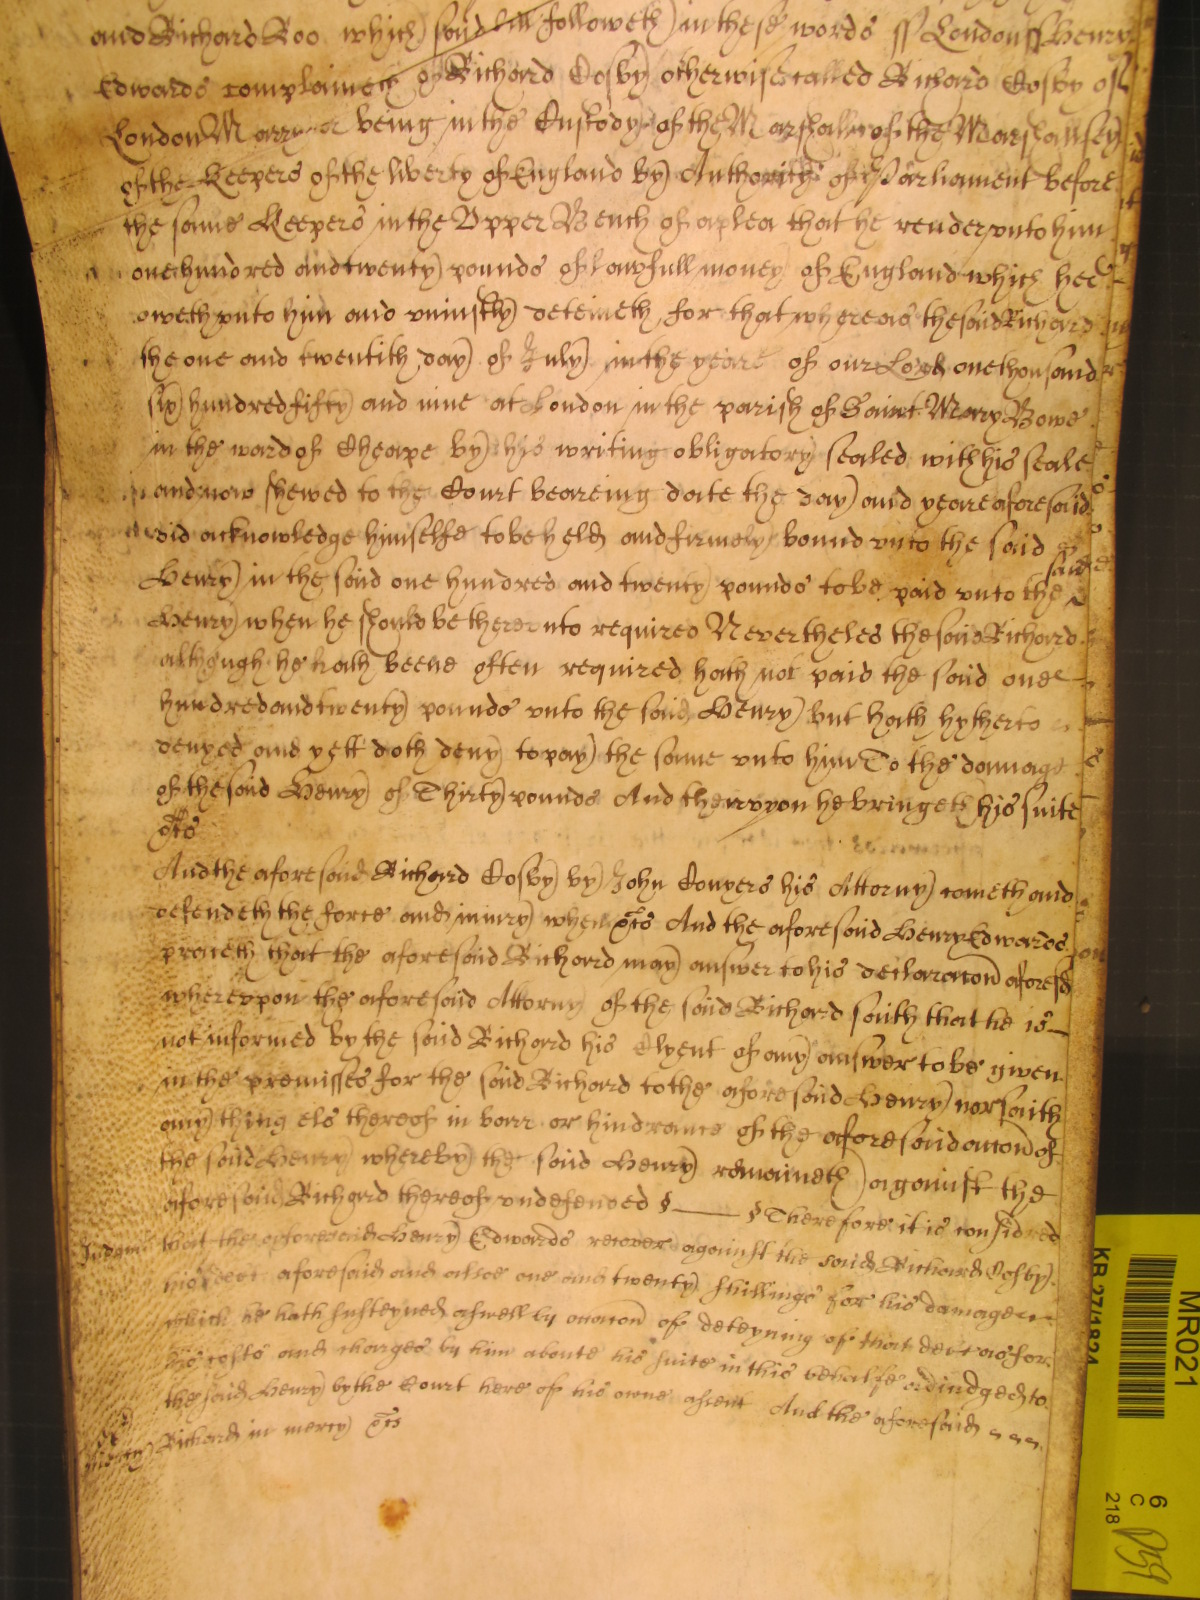 and Richard Roo which said bill followeth in these words ss London ss Henry
Edwards complaineth of Richard Cosby otherwise called Richard Cosby of
London Marryner being in the Custody of the Marshall of the Marshallsey
of the Keepers of the liberty of England by Authority of Parliament before
the same Keepers in the Vpper Bench of a plea that he render vnto him
one hundred and twenty pounds of lawfull money of England which hee
oweth vnto him and vniustly deteineth for that whereas the said Richard
the one and twentith day of July in the yeare of our Lord one thousand
six hundred fifty and nine at London in the parish of Saint Mary Bowe
in the ward of Cheape by his writing obligatory sealed with his seale
and now shewed to the Court beareing date the day and yeare aforesaid
did acknowledge himselfe to be held and firmely bound vnto the said
Henry in the said one hundred and twenty pounds to be paid vnto the said
Henry when he should be therevnto required Nevertheles the said Richard
although he hath beene often required hath not paid the said one
hundred and twenty pounds vnto the said Henry but hath hytherto
denyed and yett doth deny to pay the same vnto him To the damage
of the said Henry of Thirty pounds And therevpon he bringeth his suite
&c
And the aforesaid Richard Cosby by John Conyers his Attorny cometh and
defendeth the force and iniury when &c And the aforesaid Henry Edwards
prayeth that the aforesaid Richard may answer to his declaracon aforesd
wherevppon the aforesaid Attorny of the said Richard saith that he is
not informed by the said Richard his Clyent of any answer to be given
in the premisses for the said Richard to the aforesaid Henry nor saith
any thing els thereof in barr or hindrance of the aforesaid accon of
the said Henry whereby the said Henry remaineth against the
aforesaid Richard thereof vndefended Therefore it is considred
Judgmt that the aforesaid Henry Edwards recover against the said Richard Cosby
his debt aforesaid and alsoe one and twenty shillings for his damages
which he hath susteyned aswell by occacon of deteyning of that debt as for
his costs and charges by him aboute his suite in this behalfe adiudged to
the said Henry by the Court here of his owne assent And the aforesaid
mercy Richard in mercy &c
KB 27/1824
MR021
6
C
218